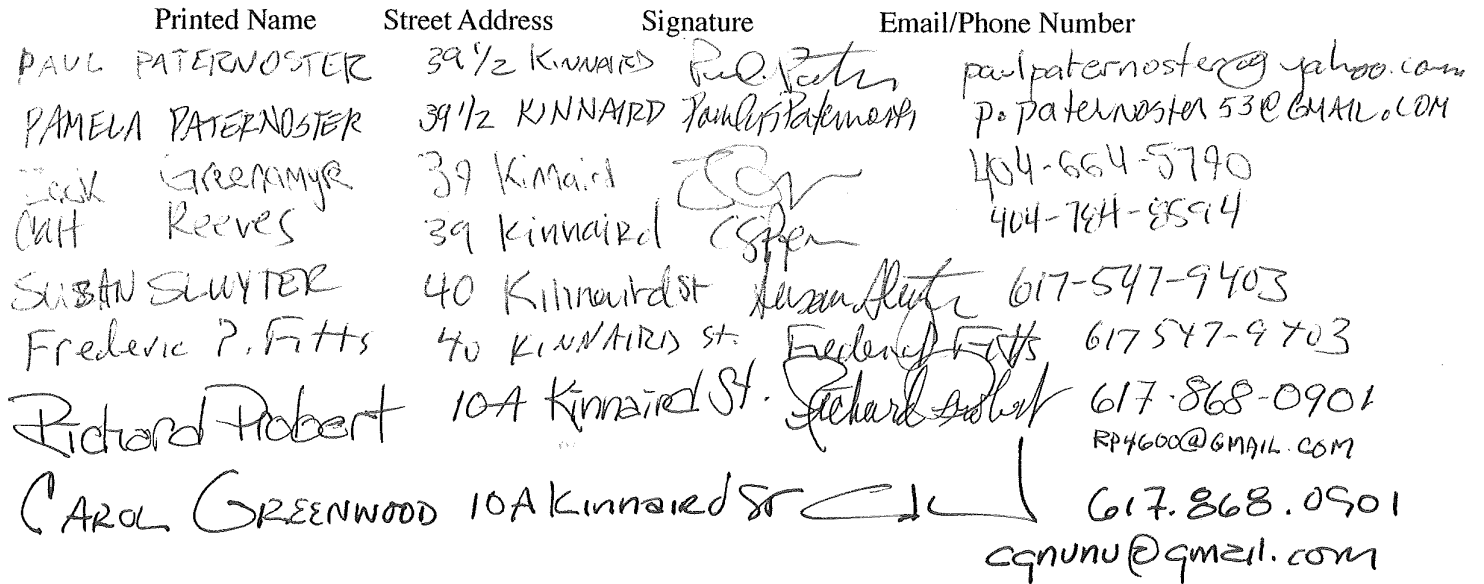 Printed Name Street Address Signature Email/Phone Number
PAUL PATERNOSTER 39 1/2 KINNAIRD paulpaternoster@yahoo.com
PAMELA PATERNOSTER 39 1/2 KINNAIRD p.paternoster53@GMAIL.COM
Greenamyre 39 Kinnaird 404-664-5790
Reeves 39 Kinnaird 404-784-8594
SUSAN SLUYTER 40 Kinnaird St Susan Sluyter 617-547-9403
Frederic P. Fitts 40 KINNAIRD St. Frederic P Fitts 617 547-9403
Richard Probert 10A Kinnaird St. Richard Probert 617-868-0901
RP4600@GMAIL.COM
CAROL GREENWOOD 10A Kinnaird St 617.868.0901
cgnunu@gmail.com